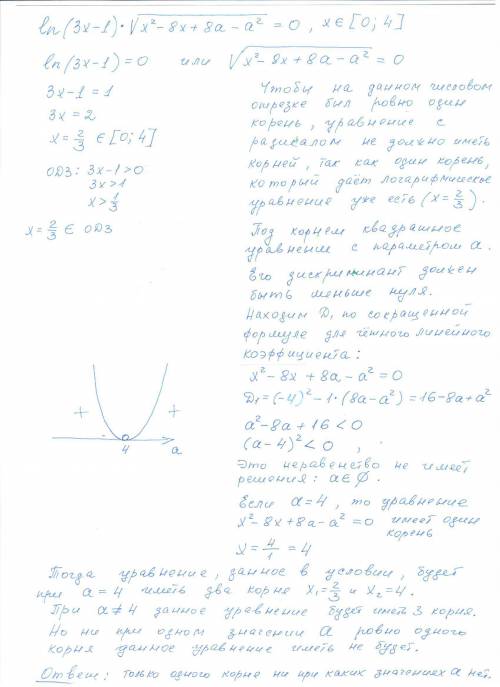 ln(3x-1)·√(x²-8x+8a-a²) = 0 , x∈[0; 4]
ln(3x-1)=0 или √(x²-8x+8a-a²) = 0
3x-1=1
3x=2
x=2/3 ∈ [0; 4]
ОДЗ: 3x-1>0
3x>1
x>1/3
x=2/3 ∈ ОДЗ
Чтобы на данном числовом
отрезке был ровно один
корень, уравнение с
радикалом не должно иметь
корней, так как один корень,
который даёт логарифмическое
уравнение уже есть (x=2/3).
Под корнем квадратное
уравнение с параметром a.
Его дискриминант должен
быть меньше нуля.
Находим D₁ по сокращенной
формуле для чётного линейного
коэффициента:
x²-8x+8a-a²=0
D₁=(-4)²-1·(8a-a²)=16-8a+a²
a²-8a+16<0
(a-4)²<0 ,
Это неравенство не имеет
решения: a∈∅.
Если a=4, то уравнение
x²-8x+8a-a²=0 имеет один
корень
x=4/1=4
+ +
4 a
Тогда уравнение, данное в условии, будет
при a=4 иметь два корня x₁=2/3 и x₂=4.
При a≠4 данное уравнение будет иметь 3 корня.
Но ни при одном значении a ровно одного
корня данное уравнение иметь не будет.
Ответ: только одного корня ни при каких значениях a нет.